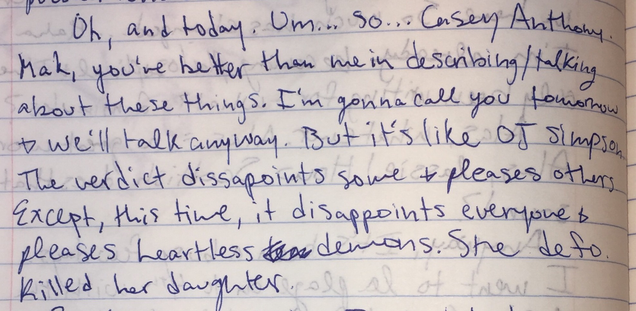 Oh, and today. Um... so... Casey Anthony.
Mak, you've better than me in describing/talking
about these things. I'm gonna call you tomorrow
& we'll talk anyway. But it's like OJ Simpson.
The verdict dissapoints some & pleases others.
Except, this time, it disappoints everyone &
pleases heartless demons. She defo.
killed her daughter.